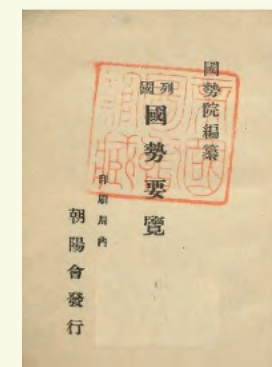 國勢院編纂
列國
國勢要覽
印刷局內
朝陽會發行